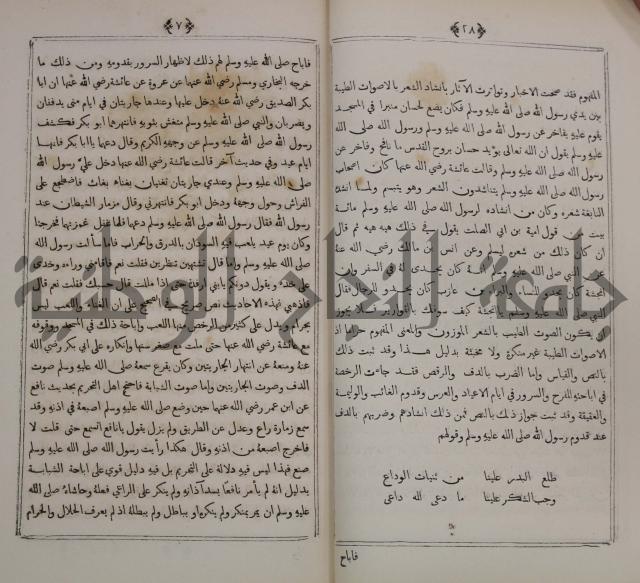 ﴿٢٨﴾
المفهوم فقد صحت الاخبار وتواترت الآثار بانشاد الشعر بالاصوات الطيبة
بين يدي رسول الله صلى الله عليه وسلم فكان يضع لحسان منبرا في المسجد
يقوم عليه يفاخر عن رسول الله صلى الله عليه وسلم ورسول الله صلى الله
عليه وسلم يقول ان الله تعالى يؤيد حسان بروح القدس ما نافح وفاخر عن
رسول الله صلى الله عليه وسلم وقالت عائشة رضي الله عنها كان اصحاب
رسول الله صلى الله عليه وسلم يتناشدون الشعر وهو يتبسم ولما انشد
النابغة شعره وكان من انشاده لرسول الله صلى الله عليه وسلم مائة
بيت من قول امية بن ابي الصلت يقول في ذلك هيه هيه ثم قال
ان كان ذلك من شعره ليسلم وعن انس بن مالك رضي الله عنه
عن النبي صلى الله عليه وسلم انه كان يحدى له في السفر وان
انجشة كان يحدو بالنساء والبراء بن عازب كان يحدو بالرجال فقال
النبي صلى الله عليه وسلم يا انجشة كيف سوقك بالقوارير فلا يجوز
ان يكون الصوت الطيب بالشعر الموزون والمعنى المفهوم حراما اذ
الاصوات الطيبة غير منكرة ولا مخبثة بدليل هذا وقد ثبت ذلك
بالنص والقياس واما الضرب بالدف والرقص فقد جاءت الرخصة
في اباحته للفرح والسرور في ايام الاعياد والعرس وقدوم الغائب والوليمة
والعقيقة وقد ثبت جواز ذلك بالنص فمن ذلك انشادهم وضربهم بالدف
عند قدوم رسول الله صلى الله عليه وسلم وقولهم
طلع البدر علينا من ثنيات الوداع
وجب الشكر علينا ما دعى لله داعى
فاباح
﴿٧﴾
فاباح صلى الله عليه وسلم لهم ذلك لاظهار السرور بقدومه ومن ذلك ما
خرجه البخاري ومسلم رضي الله عنهما عن عروة عن عائشة رضي الله عنها ان ابا
بكر الصديق رضي الله عنه دخل عليها وعندها جاريتان في ايام منى يدففان
ويضربان والنبي صلى الله عليه وسلم متغش بثوبه فانتهرهما ابو بكر فكشف
رسول الله صلى الله عليه وسلم عن وجهه الكريم وقال دعهما يا ابا بكر فانها
ايام عيد وفي حديث آخر قالت عائشة رضي الله عنها دخل علي رسول الله
صلى الله عليه وسلم وعندي جاريتان تغنيان بغناء بعاث فاضطجع على
الفراش وحول وجهه ودخل ابو بكر فانتهرني وقال مزمار الشيطان عند
رسول الله فقال رسول الله صلى الله عليه وسلم دعها فلما غفل غمزتهما فخرجتا
وكان يوم عيد يلعب فيه السودان بالدرق والحراب فاما سألت رسول الله
صلى الله عليه وسلم واما قال تشتهين تنظرين فقلت نعم فاقامني وراءه وخدي
على خده ويقول دونكم يا بني ارفدة حتى اذا مللت قال حسبك فقلت نعم قال
فاذهبي فهذه الاحاديث نص صريح في الصحيح على ان الغناء واللعب ليس
بحرام ويدل على كثير من الرخص منها اللعب واباحة ذلك في المسجد ووقوفه
مع عائشة رضي الله عنها حتى ملت مع صغر سنها وانكاره على ابي بكر رضي الله
عنه ومنعه عن انتهار الجاريتين وكان يقرع سمعه صلى الله عليه وسلم صوت
الدف وصوت الجاريتين واما صوت الشبابة فاحتج اهل التحريم بحديث نافع
عن ابن عمر رضي الله عنهما حين وضع صلى الله عليه وسلم اصبعه في اذنيه وقد
سمع زمارة راع وعدل عن الطريق ولم يزل يقول يا نافع اتسمع حتى قلت لا
فاخرج اصبعه من اذنيه وقال هكذا رأيت رسول الله صلى الله عليه وسلم
صنع فهذا ليس فيه دلالة على التحريم بل فيه دليل قوي على اباحة الشبابة
بدليل انه لم يأمر نافعا بسد آذانه ولم ينكر على الراعي فعله وحاشاه صلى الله
عليه وسلم ان يمر بمنكر ولم ينكره او بباطل ولم يبطله اذ لم يعرف الحلال والحرام
جامعة النجاح الوطنية